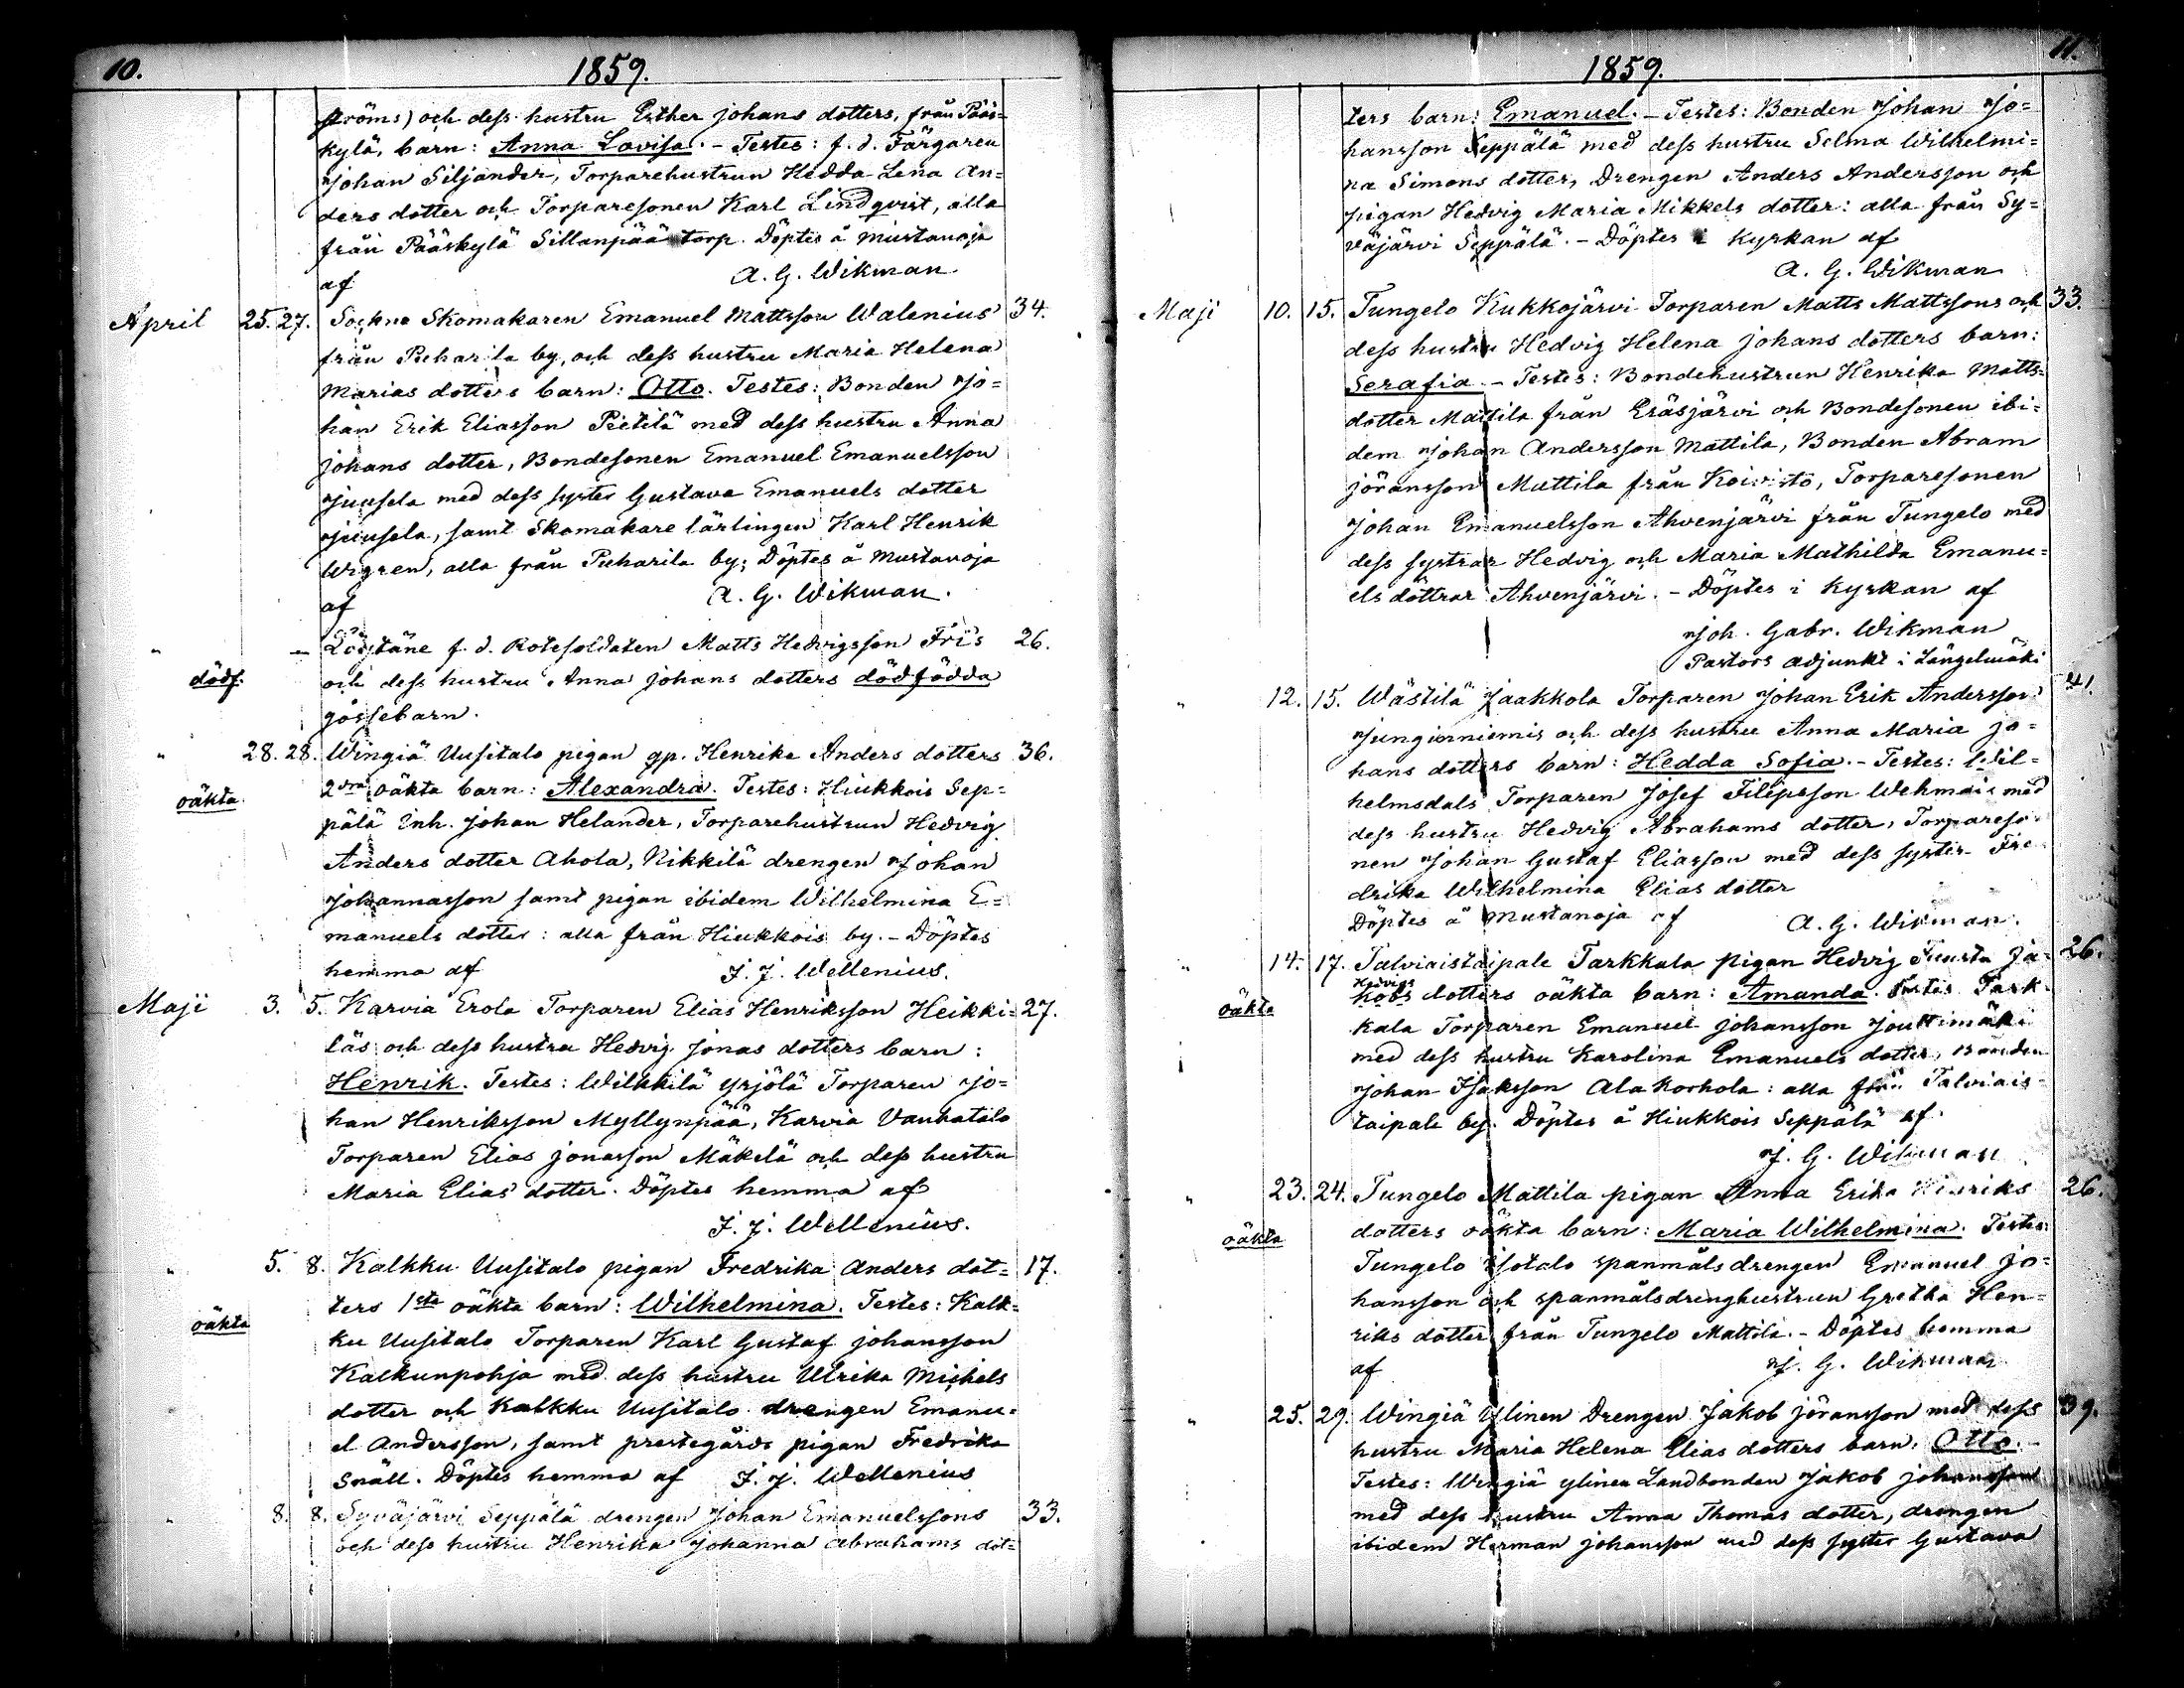 10.
1859.
ströms) och dess hustru Esther Johans dotters, från Pääs=
kylä, barn: Anna Lovisa. - Testes: f. d. Färgaren
Johan Siljander, Torparehustrun Hedda Lena An=
ders dotter och Torparesonen Karl Lindqvist, alla
från Pääskylä Sillanpää torp. Döptes å Mustanoja
af A. G. Wikman
April 25. 27. Sockne Skomakaren Emanuel Mattsson Walenius 34.
från Puharila by, och dess hustru Maria Helena
Marias dotters barn: Otto. Testes: Bonden Jo=
han Erik Eliasson Pietilä med dess hustru Anna
Johans dotter, Bondesonen Emanuel Emanuelsson
Juusela med dess syster Gustava Emanuels dotter
Juusela, samt Skomakare lärlingen Karl Henrik
Wigren, alla från Puharila by; Döptes å Mustanoja
af A. G. Wikman.
" — Löytäne f. d. Rotesoldaten Matts Hedvigsson Friis 26.
dödf. och dess hustru Anna Johans dotters dödfödda
gossebarn.
" 28. 28. Wingiä Uusitalo pigan gp. Henrika Anders dotters 36.
oäkta 2dra oäkta barn: Alexandra. Testes: Hiukkois Sep=
pälä Inh. Johan Helander, Torparehustrun Hedvig
Anders dotter Ahola, Nikkilä drengen Johan
Johannasson samt pigan ibidem Wilhelmina E=
manuels dotter: alla från Hiukkois by. - Döptes
hemma af F. J. Wellenius.
Maji 3. 5. Karvia Erola Torparen Elias Henriksson Heikki= 27.
läs och dess hustru Hedvig Jonas dotters barn:
Henrik. Testes: Wilkkilä Yrjölä Torparen Jo=
han Henriksson Myllynpää, Karvia Vanhatalo
Torparen Elias Jonasson Mäkelä och dess hustru
Maria Elias dotter. Döptes hemma af
F. J. Wellenius.
" 5. 8. Kalkku Uusitalo pigan Fredrika Anders dot= 17.
ters 1sta oäkta barn: Wilhelmina. Testes: Kalk=
oäkta ku Uusitalo Torparen Karl Gustaf Johansson
Kalkunpohja med dess hustru Ulrika Michels
dotter och Kalkku Uusitalo drengen Emanu=
el Andersson, samt prestegårds pigan Fredrika
Snäll. Döptes hemma af F. J. Wellenius
" 8. 8. Syväjärvi Seppälä drengen Johan Emanuelssons 33.
och dess hustru Henrika Johanna Abrahams dot=
11.
1859.
ters barn: Emanuel. - Testes: Bonden Johan Jo=
hansson Seppälä med dess hustru Selma Wilhelmi=
na Simons dotter, Drengen Anders Andersson och
pigan Hedvig Maria Mikkels dotter: alla från Sy=
väjärvi Seppälä. - Döptes i Kyrkan af
A. G. Wikman
Maji 10. 15. Tungelo Kukkojärvi Torparen Matts Mattssons och 33.
dess hustru Hedvig Helena Johans dotters barn:
Serafia - Testes: Bondehustrun Henrika Matts=
dotter Mattila från Eräsjärvi och Bondesonen ibi=
dem Johan Andersson Mattila, Bonden Abram
Jöransson Mattila från Koivisto, Torparesonen
Johan Emanuelsson Ahvenjärvi från Tungelo med
dess systrar Hedvig och Maria Mathilda Emanu=
els döttrar Ahvenjärvi. - Döptes i Kyrkan af
Joh. Gabr. Wikman
Pastors adjunkt i Längelmäki
" 12. 15. Wästilä Jaakkola Torparen Johan Erik Andersson 41.
Junginniemis och dess hustru Anna Maria Jo=
hans dotters barn: Hedda Sofia. - Testes: Wil=
helmsdals Torparen Josef Filipsson Wehmais med
dess hustru Hedvig Abrahams dotter, Torpareso=
nen Johan Gustaf Eliasson med dess syster Fre=
drika Wilhelmina Elias dotter
Döptes å Mustanoja af A. G. Wikman.
" 14. 17. Talviaistaipale Tarkkala pigan Hedvig Fausta Ja= 26.
Hedvigs
oäkta kobs dotters oäkta barn: Amanda. Testes Tark=
kala Torparen Emanuel Johansson Jouttimäki
med dess hustru Karolina Emanuels dotter, Bonden
Johan Isaksson Alakorhola: alla från Talviais=
taipale by. Döptes å Hiukkois Seppälä af
J. G. Wikman
" 23. 24. Tungelo Mattila pigan Anna Erika Henriks 26.
oäkta dotters oäkta barn: Maria Wilhelmina. Testes:
Tungelo Isotalo spanmålsdrengen Emanuel Jo=
hansson och spanmålsdrenghustrun Gretha Hen=
riks dotter från Tungelo Mattila. - Döptes hemma
af J. G. Wikman
" 25. 29. Wingiä Ylinen Drengen Jakob Jöransson med dess 39.
hustru Maria Helena Elias dotters barn: Otto. -
Testes: Wingiä Ylinen Landbonden Jakob Johansson
med dess hustru Anna Thomas dotter, drengen
ibidem Herman Johansson med dess syster Gustava